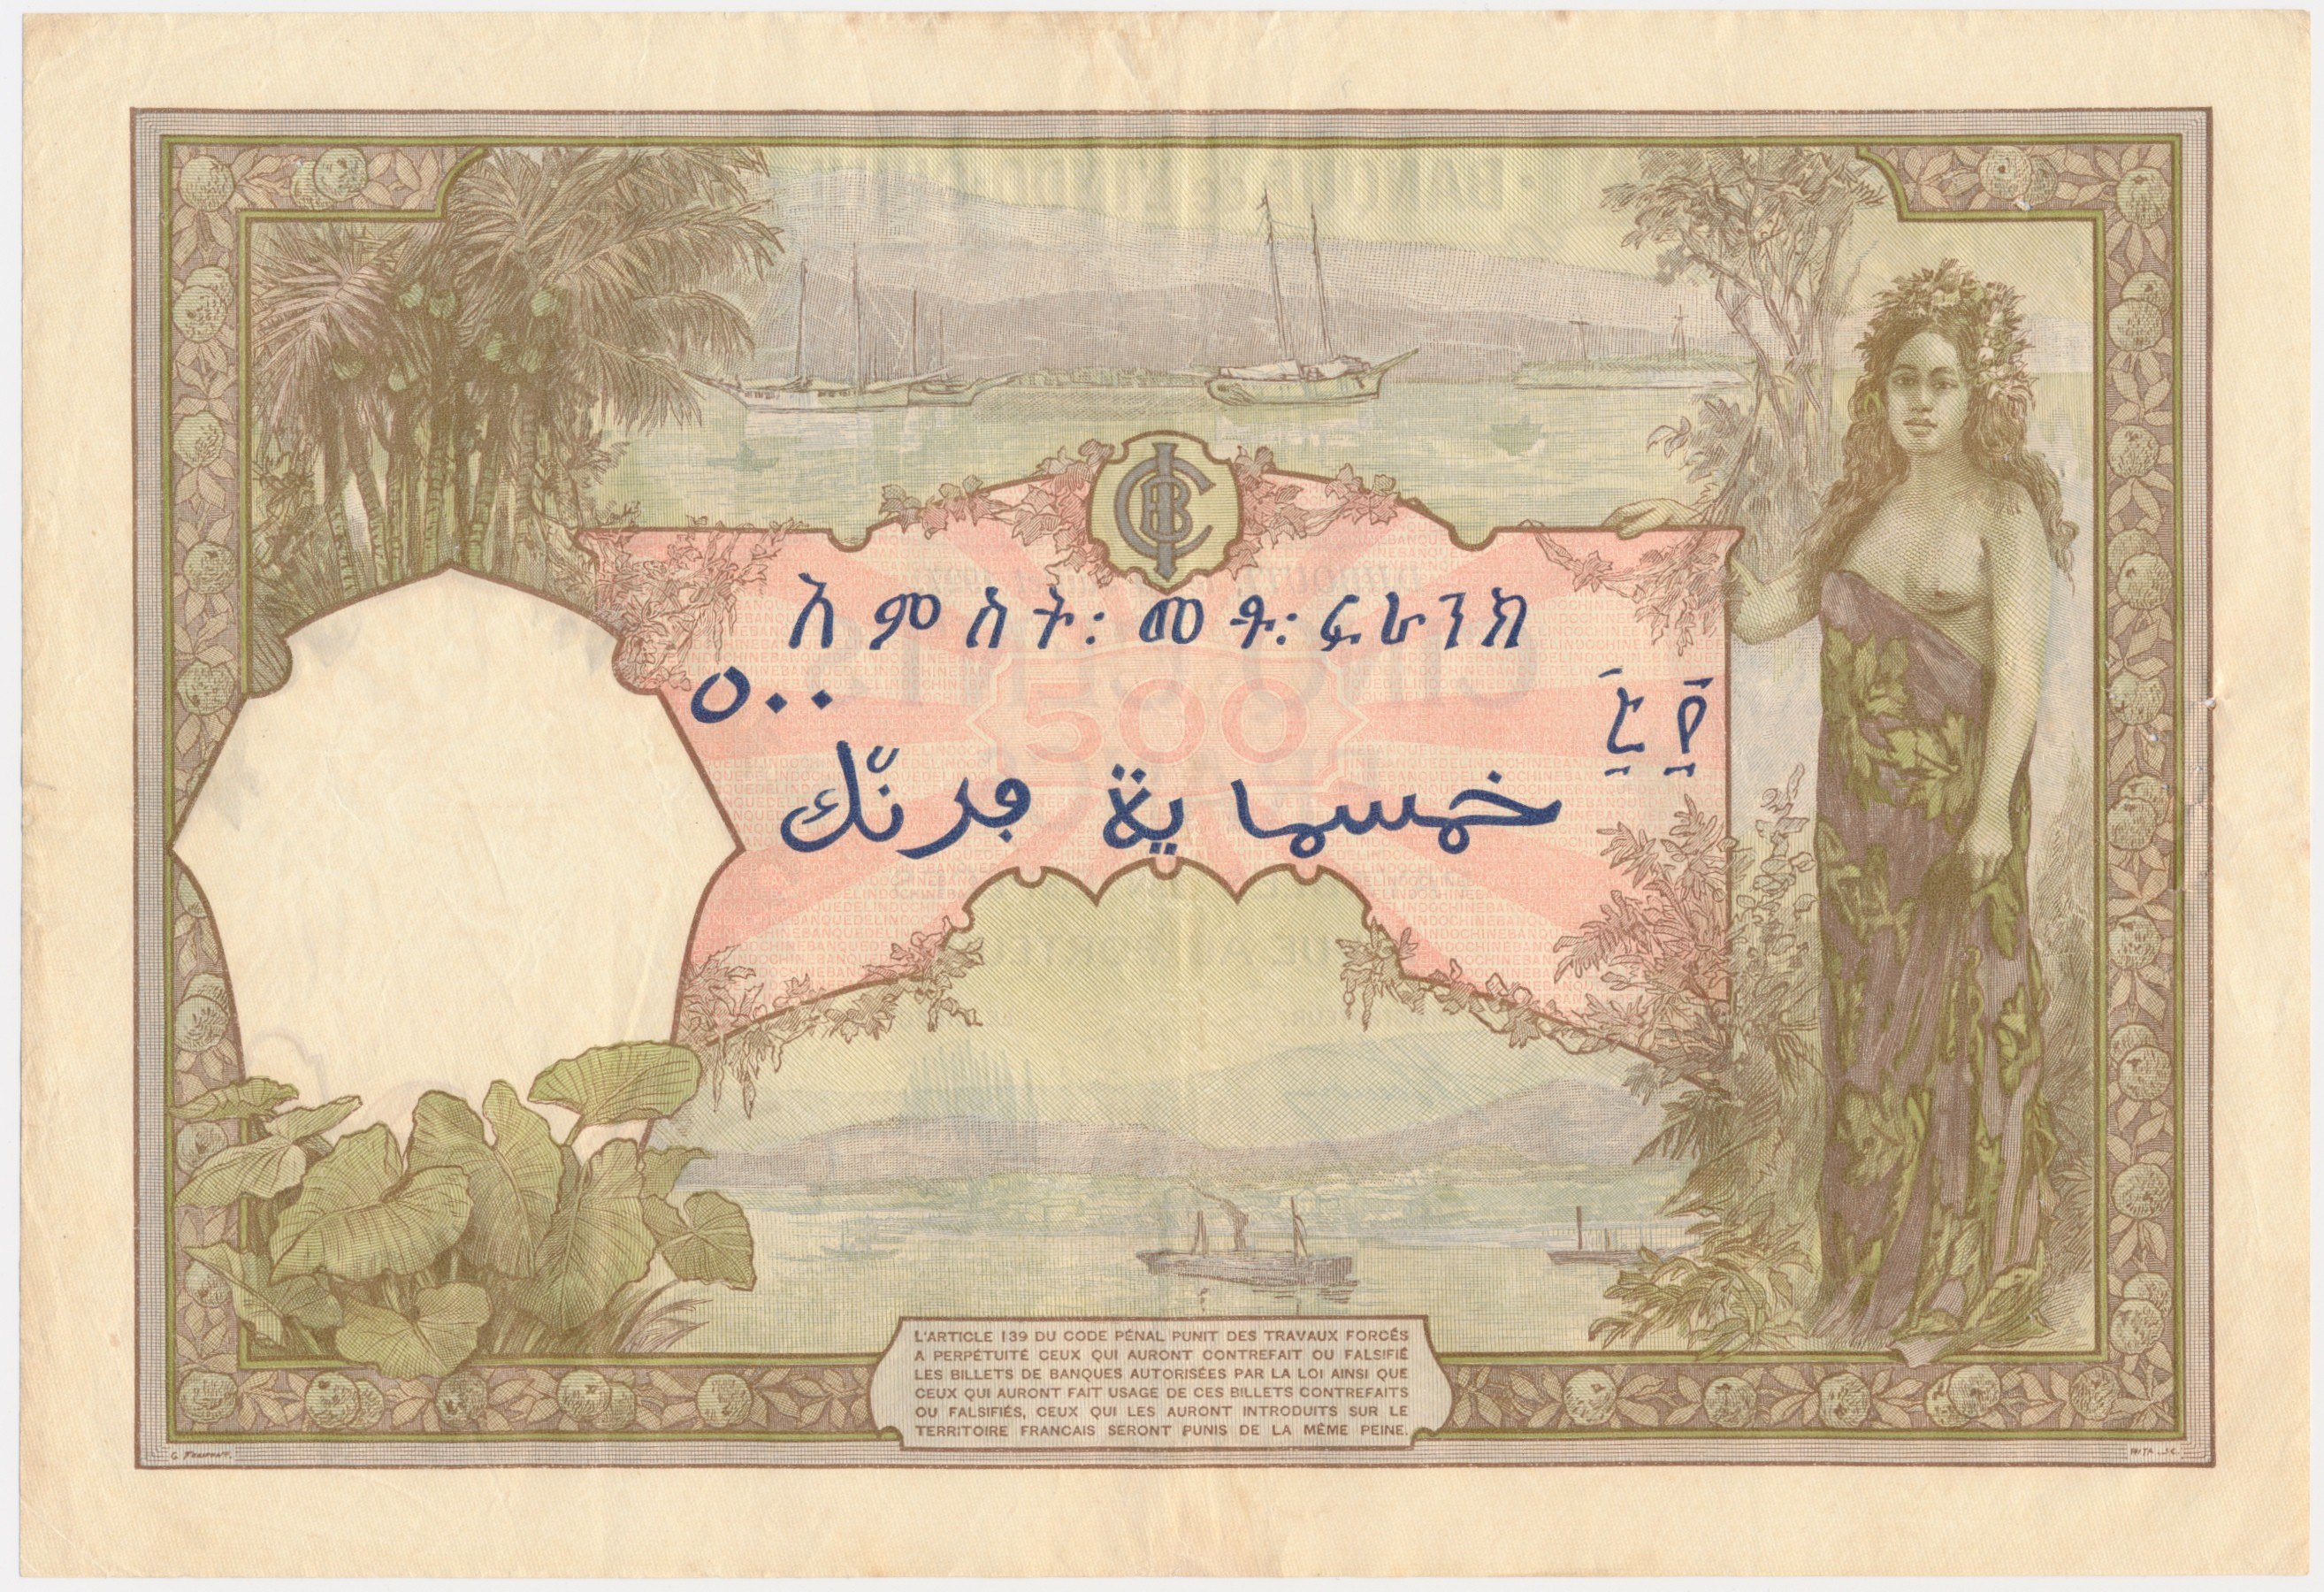 አምስት፡ መቶ፡ ፍራንክ
٥٠٠
500
፭፻
خمسماية فرنّك
L'ARTICLE 139 DU CODE PÉNAL PUNIT DES TRAVAUX FORCÉS
A PERPÉTUITÉ CEUX QUI AURONT CONTREFAIT OU FALSIFIÉ
LES BILLETS DE BANQUES AUTORISÉES PAR LA LOI AINSI QUE
CEUX QUI AURONT FAIT USAGE DE CES BILLETS CONTREFAITS
OU FALSIFIÉS, CEUX QUI LES AURONT INTRODUITS SUR LE
TERRITOIRE FRANCAIS SERONT PUNIS DE LA MÊME PEINE.